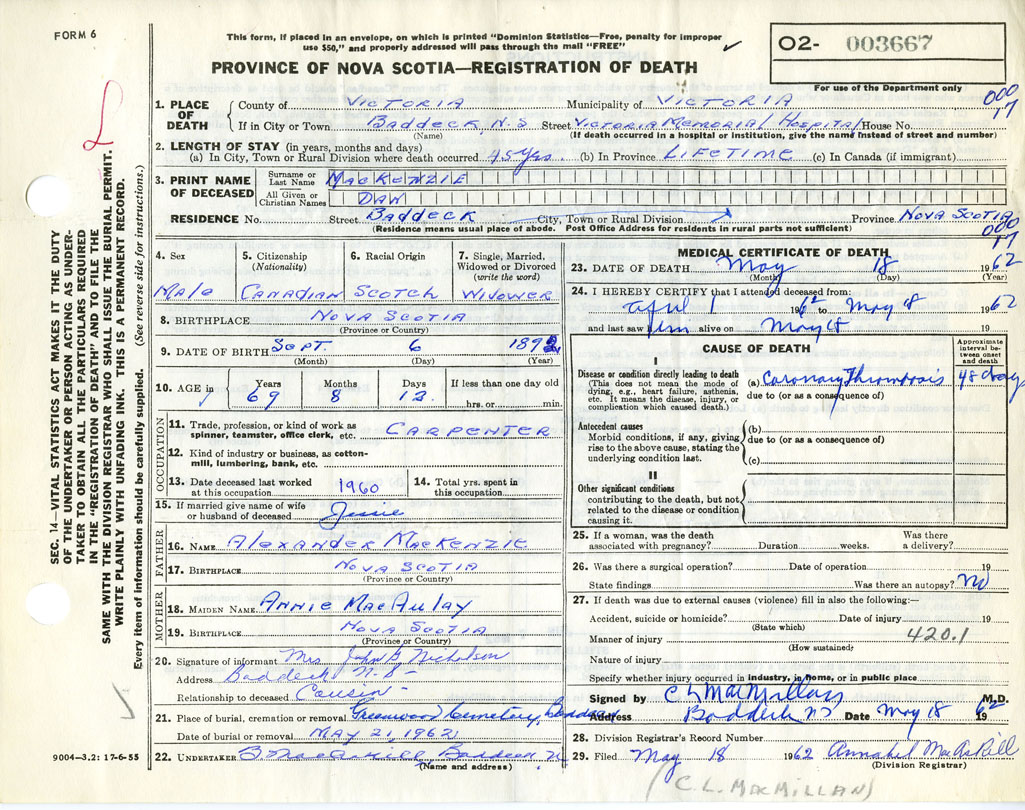 FORM 6
This form, if placed in an envelope, on which is printed "Dominion Statistics—Free, penalty for improper
use $50," and properly addressed will pass through the mail "FREE"
PROVINCE OF NOVA SCOTIA—REGISTRATION OF DEATH
O2- 003667
For use of the Department only
000
17
1. PLACE OF DEATH
County of VICTORIA Municipality of VICTORIA
If in City or Town BADDECK, N.S Street VICTORIA MEMORIAL HOSPITAL House No.
(Name) (If death occurred in a hospital or institution, give the name instead of street and number)
2. LENGTH OF STAY (in years, months and days)
(a) In City, Town or Rural Division where death occurred 45 yrs. (b) In Province LIFETIME (c) In Canada (if immigrant)
3. PRINT NAME OF DECEASED
Surname or Last Name MACKENZIE
All Given or Christian Names DAN
RESIDENCE No. Street BADDECK City, Town or Rural Division Province NOVA SCOTIA
(Residence means usual place of abode. Post Office Address for residents in rural parts not sufficient)
000
17
4. Sex
Male
5. Citizenship
(Nationality)
CANADIAN
6. Racial Origin
SCOTCH
7. Single, Married,
Widowed or Divorced
(write the word)
WIDOWER
8. BIRTHPLACE NOVA SCOTIA
(Province or Country)
9. DATE OF BIRTH SEPT. 6 1892
(Month) (Day) (Year)
10. AGE in
Years Months Days If less than one day old
69 8 12 hrs. or min.
OCCUPATION
11. Trade, profession, or kind of work as
spinner, teamster, office clerk, etc. CARPENTER
12. Kind of industry or business, as cotton-
mill, lumbering, bank, etc.
13. Date deceased last worked
at this occupation 1960
14. Total yrs. spent in
this occupation
15. If married give name of wife
or husband of deceased Jessie
FATHER
16. NAME ALEXANDER MACKENZIE
17. BIRTHPLACE NOVA SCOTIA
(Province or Country)
MOTHER
18. MAIDEN NAME ANNIE MACAULAY
19. BIRTHPLACE NOVA SCOTIA
(Province or Country)
20. Signature of informant Mrs John Nicholson
Address Baddeck N.S-
Relationship to deceased Cousin-
21. Place of burial, cremation or removal Greenwood Cemetery, Baddeck
Date of burial or removal MAY 21, 1962
22. UNDERTAKER Baddeck
(Name and address)
MEDICAL CERTIFICATE OF DEATH
23. DATE OF DEATH May 18 1962
(Month) (Day) (Year)
24. I HEREBY CERTIFY that I attended deceased from:
April 1 1962 to May 18 1962
and last saw him alive on May 18 19
CAUSE OF DEATH
Approximate interval between onset and death
I
Disease or condition directly leading to death
(This does not mean the mode of
dying, e.g., heart failure, asthenia,
etc. It means the disease, injury, or
complication which caused death.)
(a) Coronary Thrombosis 48 days
due to (or as a consequence of)
Antecedent causes
Morbid conditions, if any, giving
rise to the above cause, stating the
underlying condition last.
(b)
due to (or as a consequence of)
(c)
II
Other significant conditions
contributing to the death, but not
related to the disease or condition
causing it.
25. If a woman, was the death
associated with pregnancy? Duration weeks. Was there
a delivery?
26. Was there a surgical operation? Date of operation 19
State findings Was there an autopsy? No
27. If death was due to external causes (violence) fill in also the following:—
Accident, suicide or homicide? Date of injury 19
(State which)
Manner of injury 420.1
(How sustained)
Nature of injury
Specify whether injury occurred in industry, in home, or in public place
Signed by C L MacMillan M.D.
Address Baddeck NS Date May 18 1962
28. Division Registrar's Record Number
29. Filed May 18 1962 Annabel MacAskill
(Division Registrar)
(C. L. MACMILLAN)
9004—3.2: 17-6-55
SEC. 14—VITAL STATISTICS ACT MAKES IT THE DUTY
OF THE UNDERTAKER OR PERSON ACTING AS UNDER-
TAKER TO OBTAIN ALL THE PARTICULARS REQUIRED
IN THE "REGISTRATION OF DEATH" AND TO FILE THE
SAME WITH THE DIVISION REGISTRAR WHO SHALL ISSUE THE BURIAL PERMIT.
WRITE PLAINLY WITH UNFADING INK. THIS IS A PERMANENT RECORD.
Every item of information should be carefully supplied. (See reverse side for instructions.)